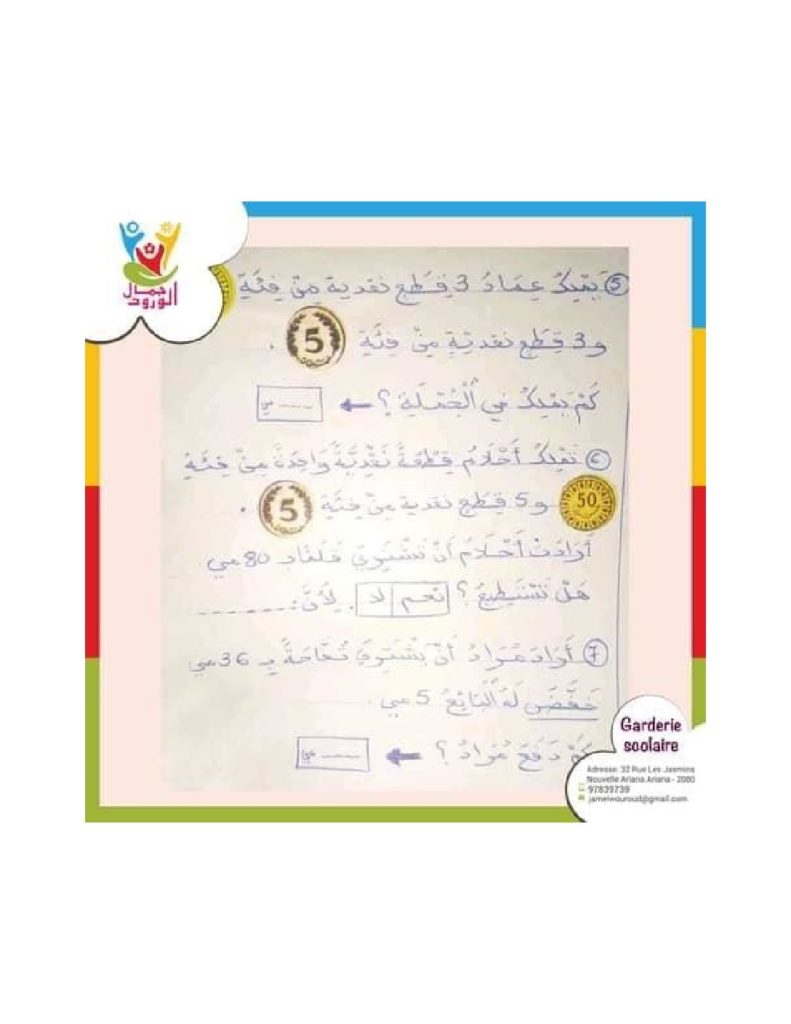 جمال
الورود
5 يَمْلِكُ عِمَادُ 3 قِطَعٍ نقدية مِنْ فِئَةِ
و 3 قِطَعٍ نقديّةٍ مِنْ فِئَةِ 5 .
كَمْ يَمْلِكُ فِي الْجُمْلَةِ ؟ ← ---- مي
6 تَمْلِكُ أَحْلَامُ قِطْعَةً نَقْدِيَّةً وَاحِدَةً مِنْ فِئَةِ
50 و 5 قِطَعٍ نقدية مِنْ فِئَةِ 5 .
أَرَادَتْ أَحْلَامُ أَنْ تَشْتَرِيَ 80 مي
هَلْ تَسْتَطِيعُ ؟ نعم لا . لِأَنَّ : -------
7 أَرَادَ مُرَادُ أَنْ يَشْتَرِيَ تُفَّاحَةً بِـ 36 مي
خَفَّضَ لَهُ الْبَائِعُ 5 مي .
كَمْ دَفَعَ مُرَادُ ؟ ← ---- مي
Garderie
scolaire
Adresse: 32 Rue Les Jasmins
Nouvelle Ariana Ariana - 2080
97839739
jamelwouroud@gmail.com